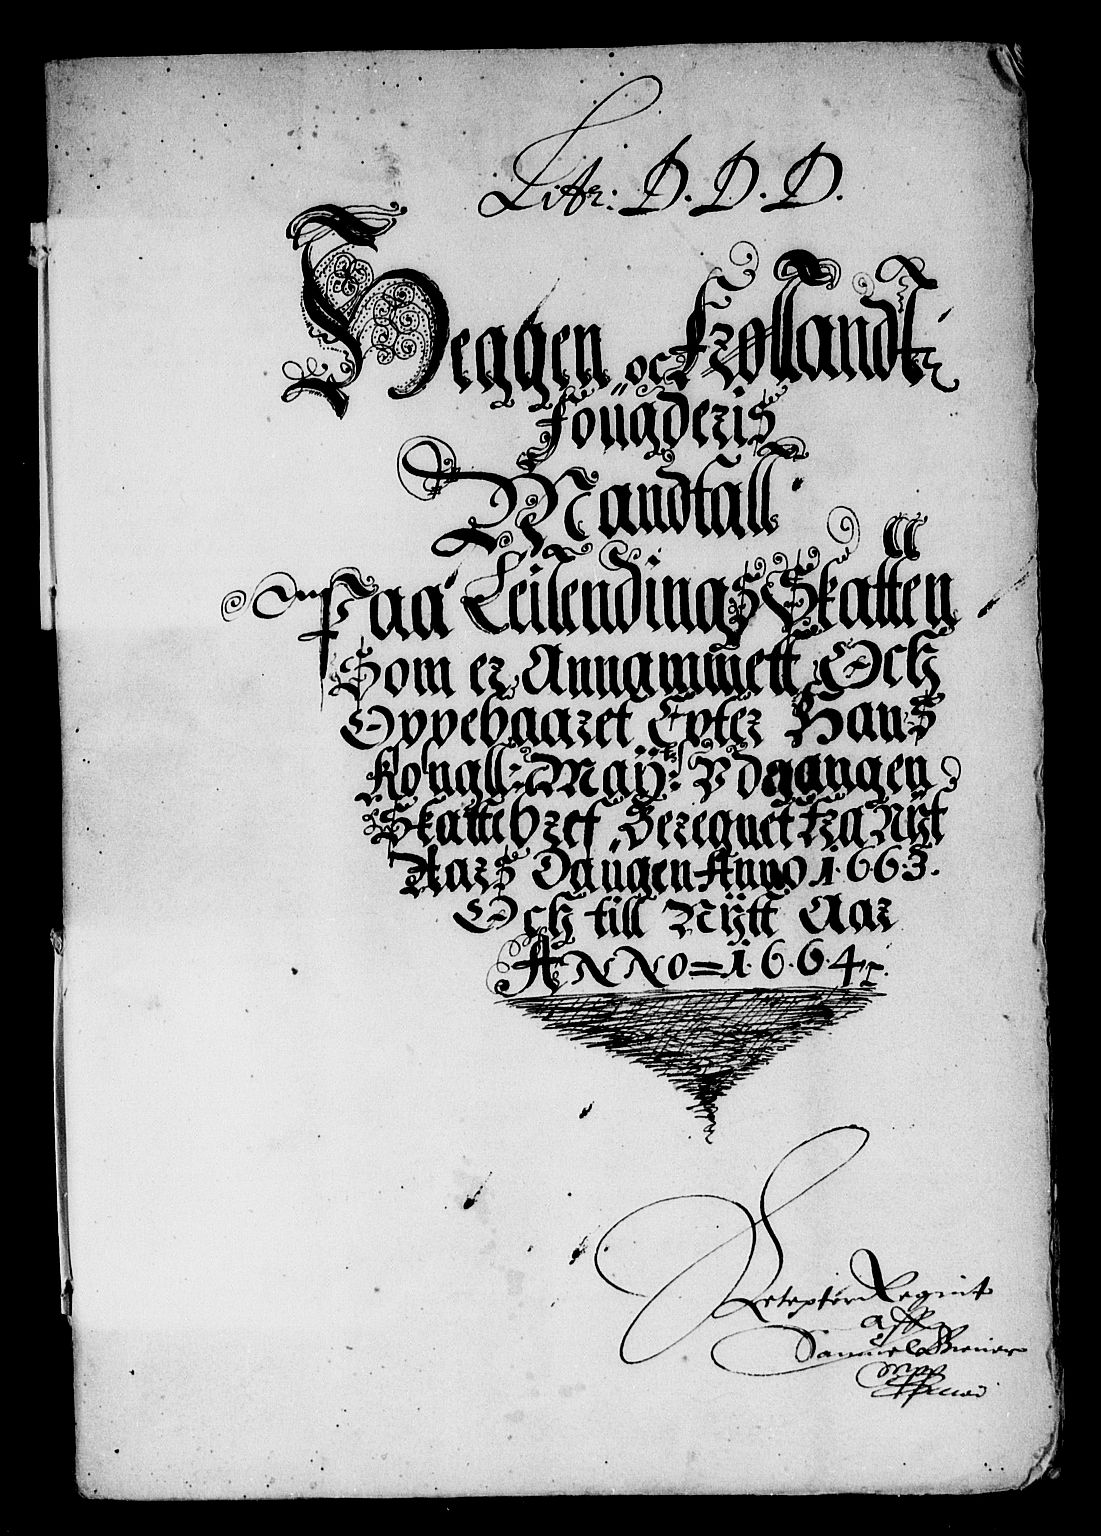 Litr: D. D. D.
Heggen oc Frøllandt
fougderis
Mandtall
Paa Leilendings Skatten
Som er Annammett Och
Oppebaaret Epter Hans
Kongll: Mayts: Vdgangen
Skattebref, Beregnet fra Nyt
Aars Daugen Anno 1663.
Och till Nytt Aar
ANNO = 1664
Samuel